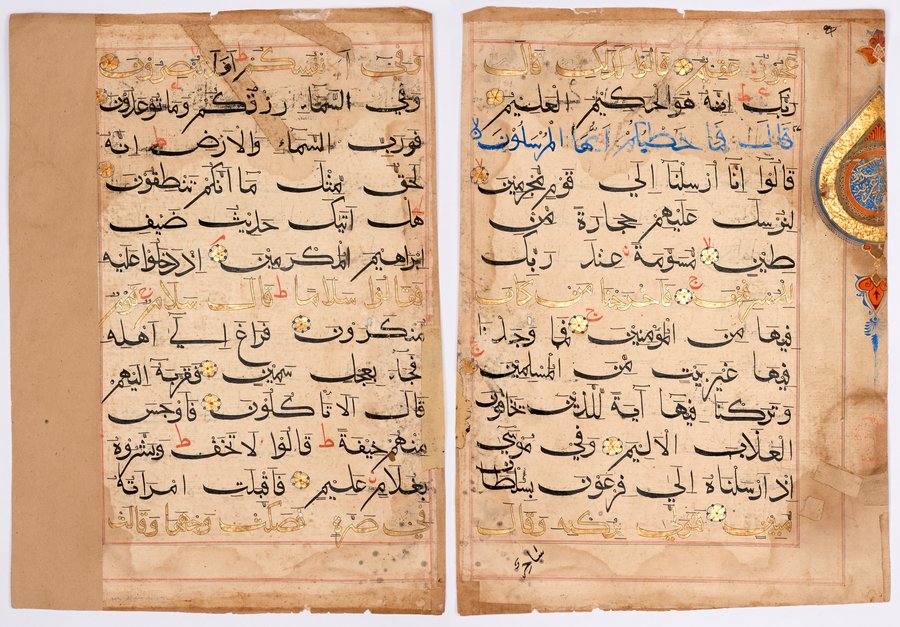 وفي انفسكم افلا تبصرون
وفي السماء رزقكم وما توعدون
فورب السماء والارض انه
لحق مثل ما انكم تنطقون
هل اتيك حديث ضيف
ابراهيم المكرمين اذ دخلوا عليه
فقالوا سلاما قال سلام قوم
منكرون فراغ الي اهله
فجآء بعجل سمين فقربه اليهم
قال الا تاكلون فاوجس
منهم خيفة قالوا لا تخف وبشروه
بغلام عليم فاقبلت امراته
في صرة فصكت وجهها وقالت
عجوز عقيم قالوا كذلك قال
ربك انه هو الحكيم العليم
قال فما خطبكم ايها المرسلون
قالوا انآ ارسلنآ الي قوم مجرمين
لنرسل عليهم حجارة من
طين مسومة عند ربك
للمسرفين فاخرجنا من كان
فيها من المؤمنين فما وجدنا
فيها غير بيت من المسلمين
وتركنا فيها آية للذين يخافون
العذاب الاليم وفي موسي
اذ ارسلناه الي فرعون بسلطان
مبين فتولي بركنه وقال
ساحر